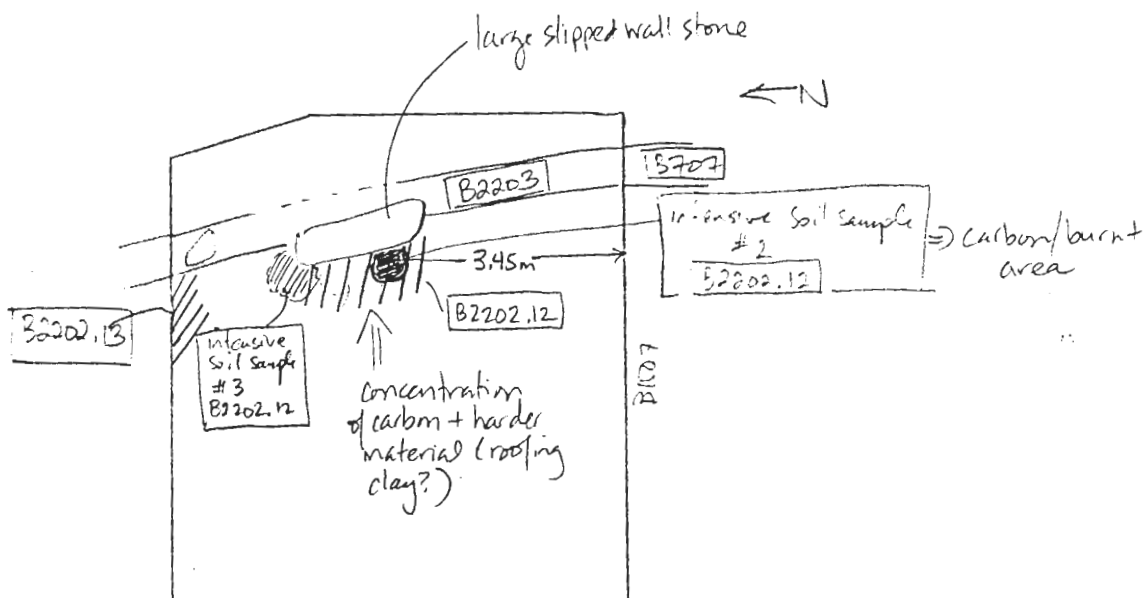 large slipped wall stone
N
B707
B2203
intensive soil sample
#2
B2202.12
⇒ carbon/burnt
area
3.45m
B2202.12
B2202.13
intensive
soil sample
#3
B2202.12
concentration
of carbon + harder
material (roofing
clay?)